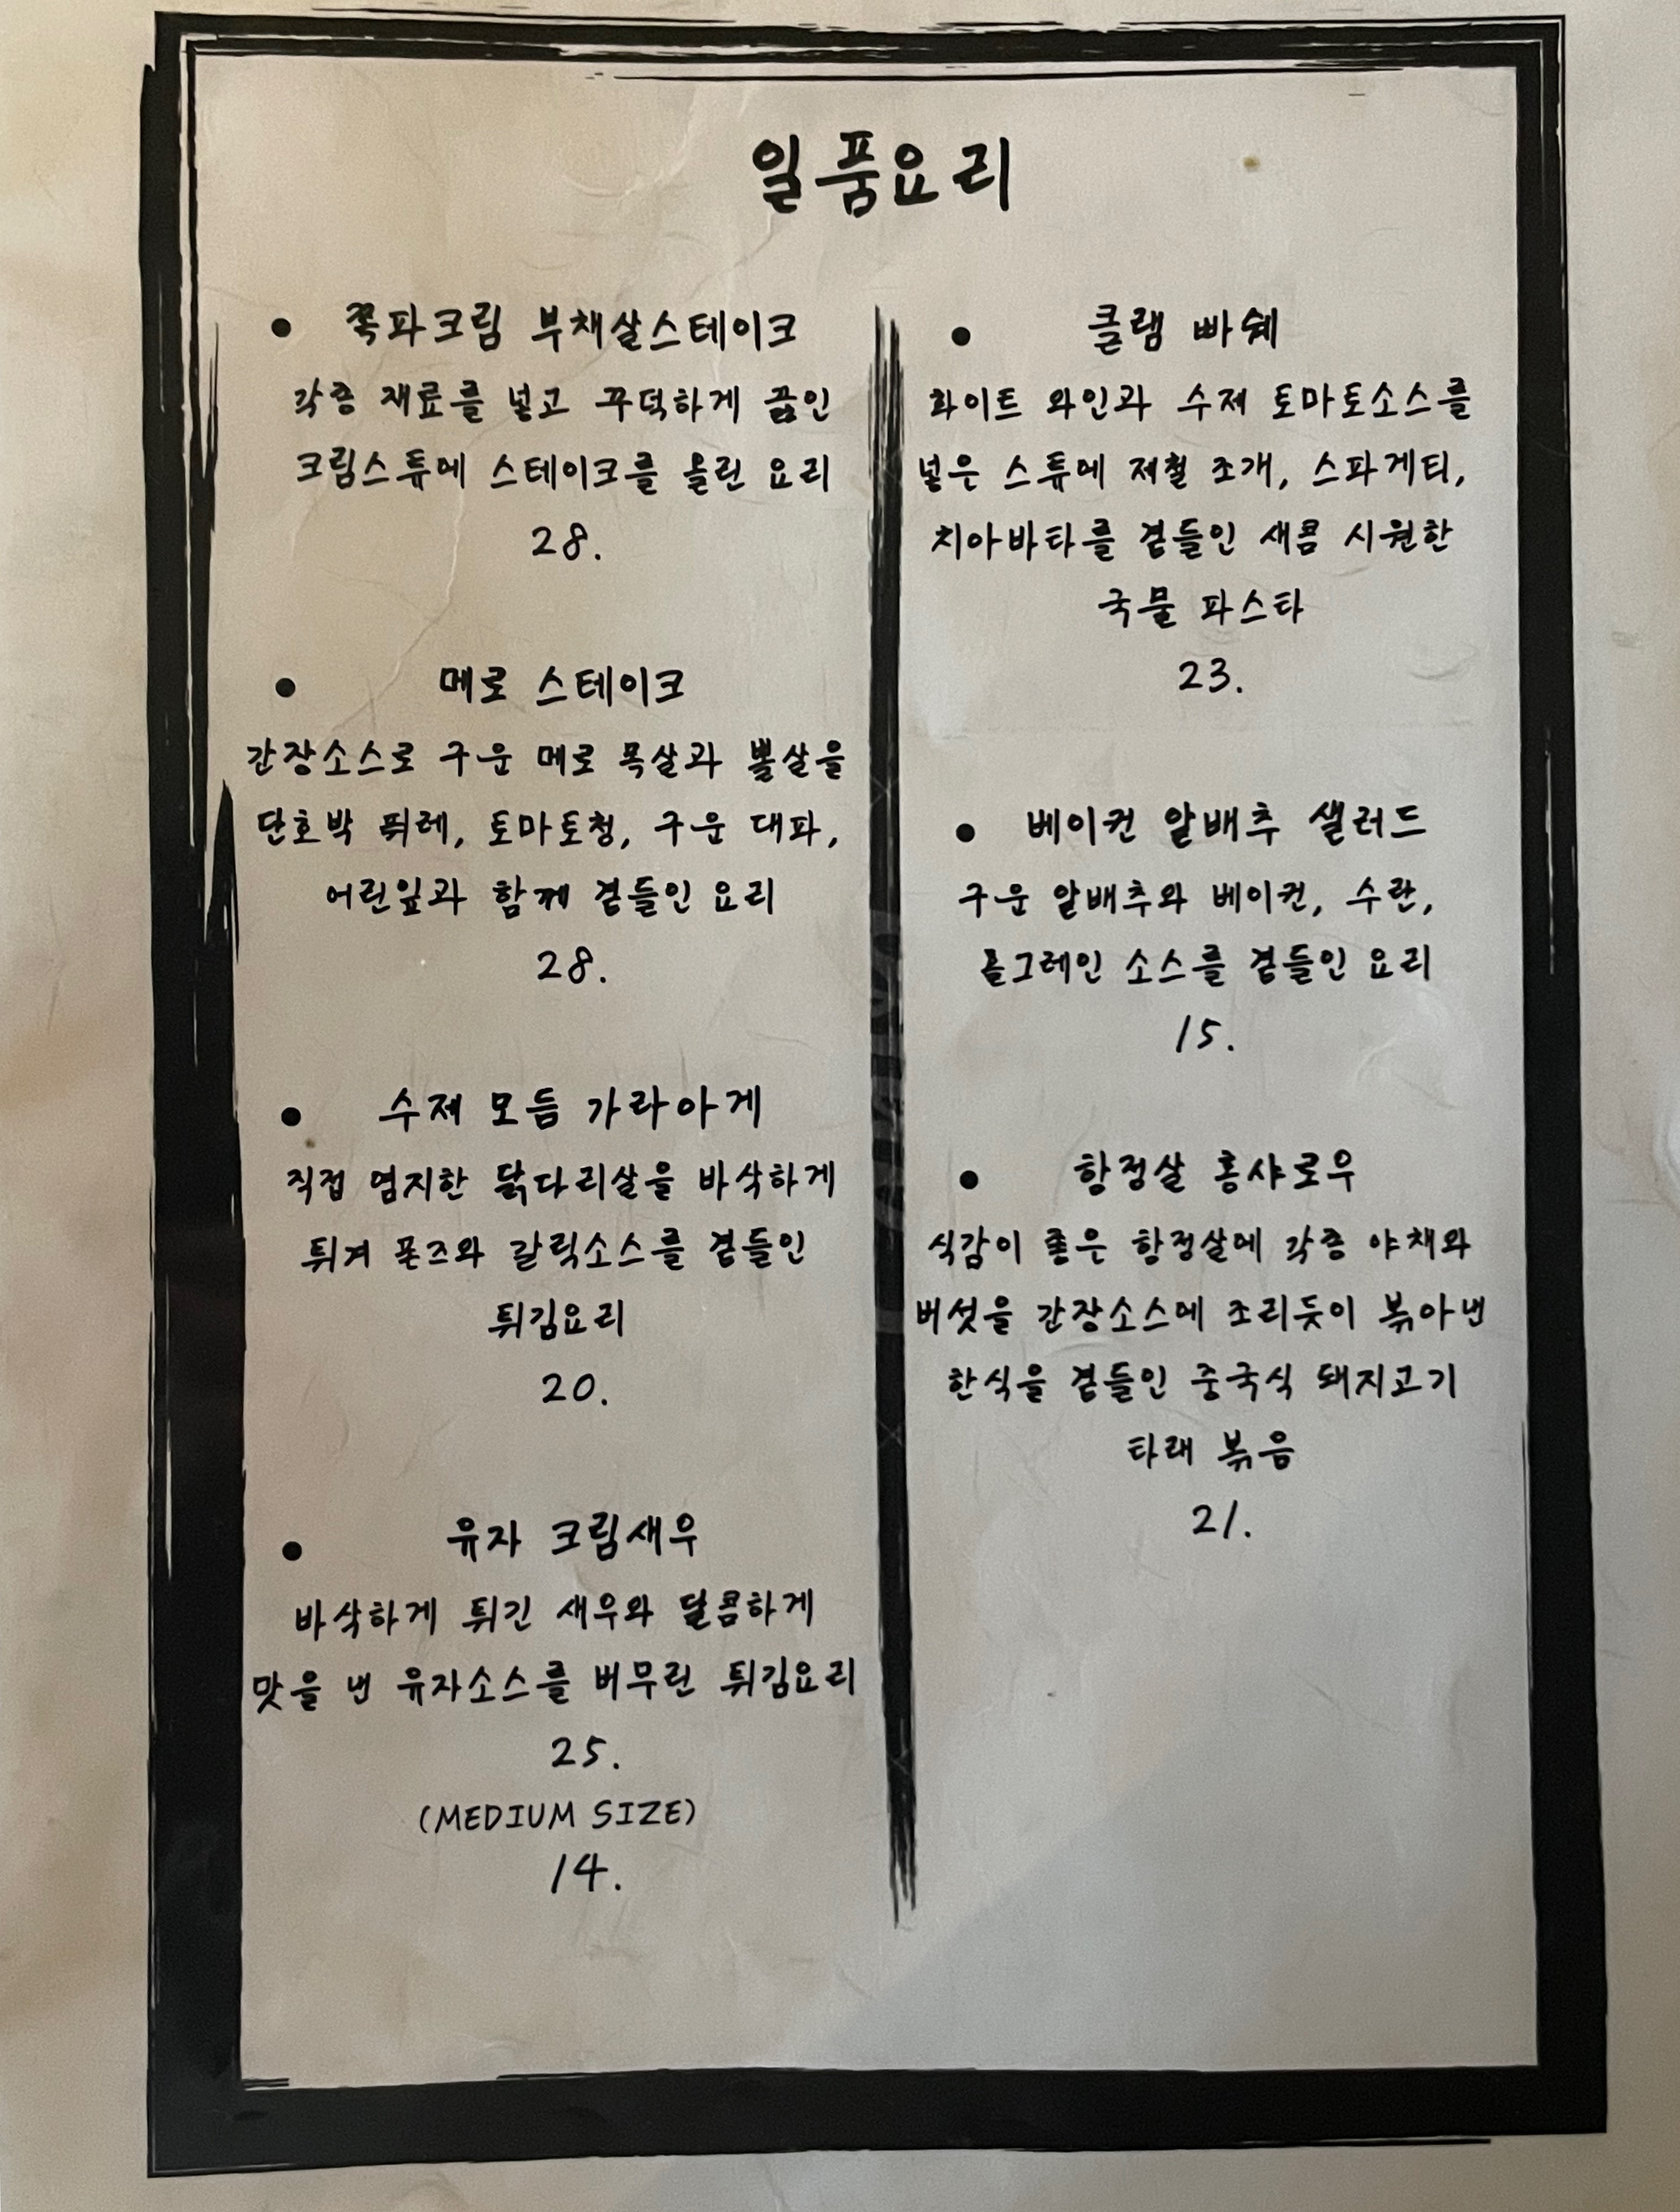 일품요리
• 쪽파크림 부채살스테이크
각종 재료를 넣고 꾸덕하게 끓인
크림스튜에 스테이크를 올린 요리
28.
• 메로 스테이크
간장소스로 구운 메로 목살과 뽈살을
단호박 퓌레, 토마토청, 구운 대파,
어린잎과 함께 곁들인 요리
28.
• 수제 모듬 가라아게
직접 염지한 닭다리살을 바삭하게
튀겨 폰즈와 갈릭소스를 곁들인
튀김요리
20.
• 유자 크림새우
바삭하게 튀긴 새우와 달콤하게
맛을 낸 유자소스를 버무린 튀김요리
25.
(MEDIUM SIZE)
14.
• 클램 빠쉐
화이트 와인과 수제 토마토소스를
넣은 스튜에 제철 조개, 스파게티,
치아바타를 곁들인 새콤 시원한
국물 파스타
23.
• 베이컨 알배추 샐러드
구운 알배추와 베이컨, 수란,
홀그레인 소스를 곁들인 요리
15.
• 항정살 홍샤로우
식감이 좋은 항정살에 각종 야채와
버섯을 간장소스에 조리듯이 볶아낸
한식을 곁들인 중국식 돼지고기
타래 볶음
21.